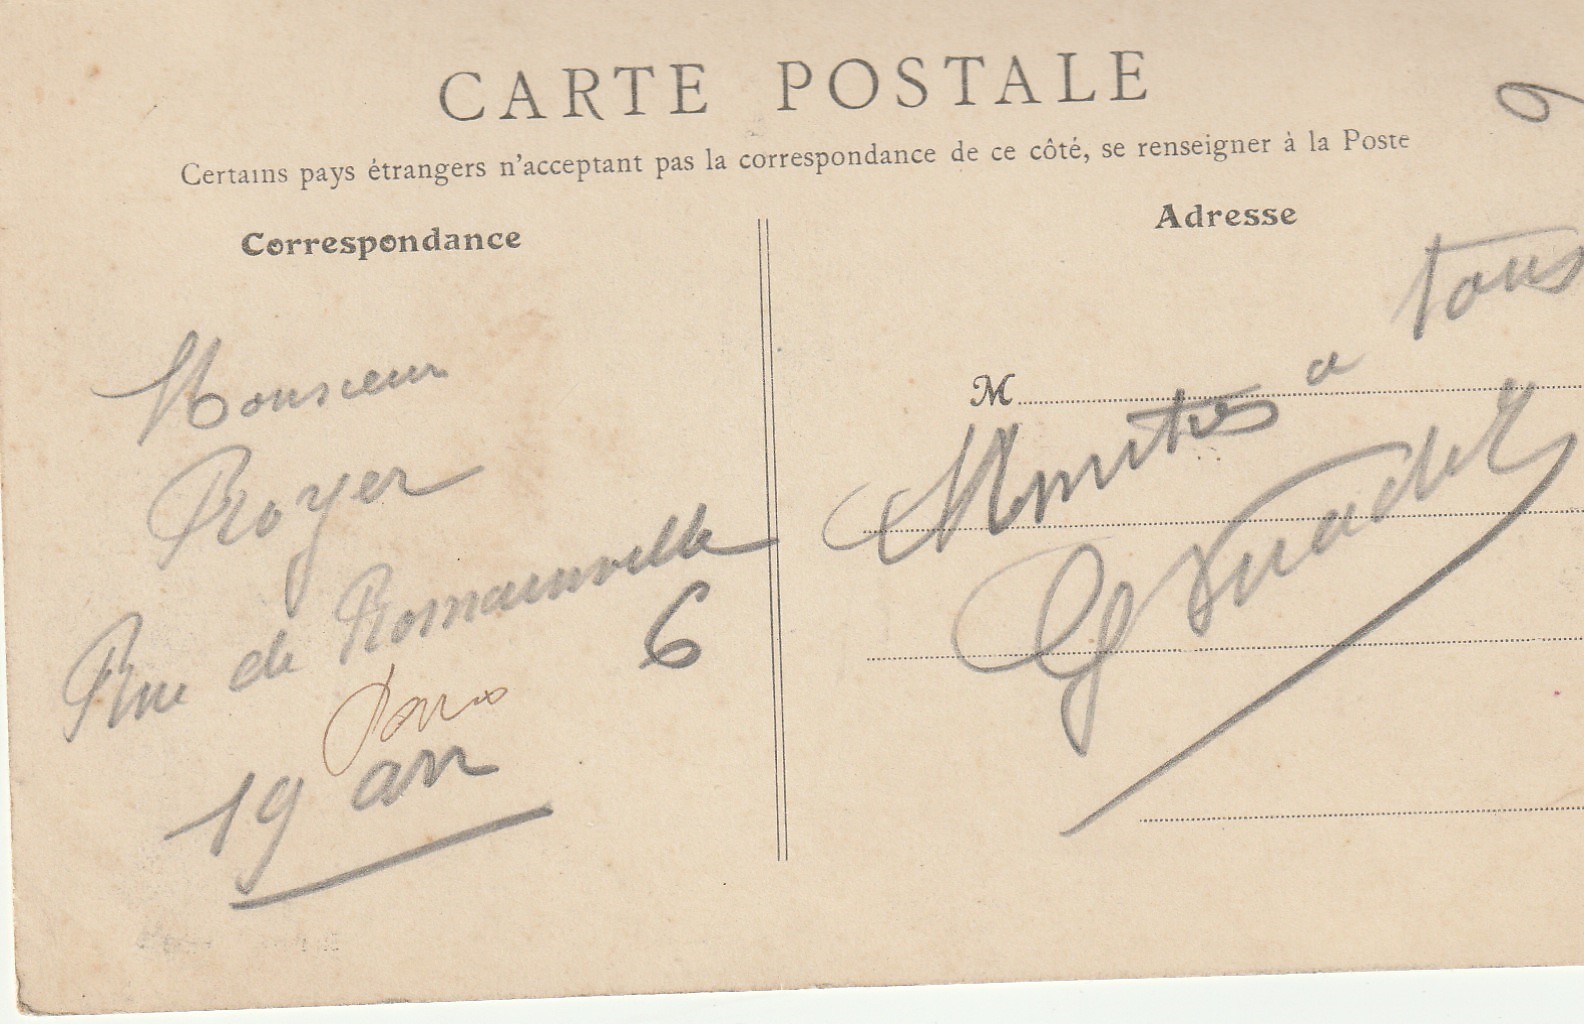 CARTE POSTALE
Certains pays étrangers n'acceptant pas la correspondance de ce côté, se renseigner à la Poste
Correspondance
Monsieur
Royer
Rue de Romainville
6
Paris
19 arr
Adresse
M
a tous